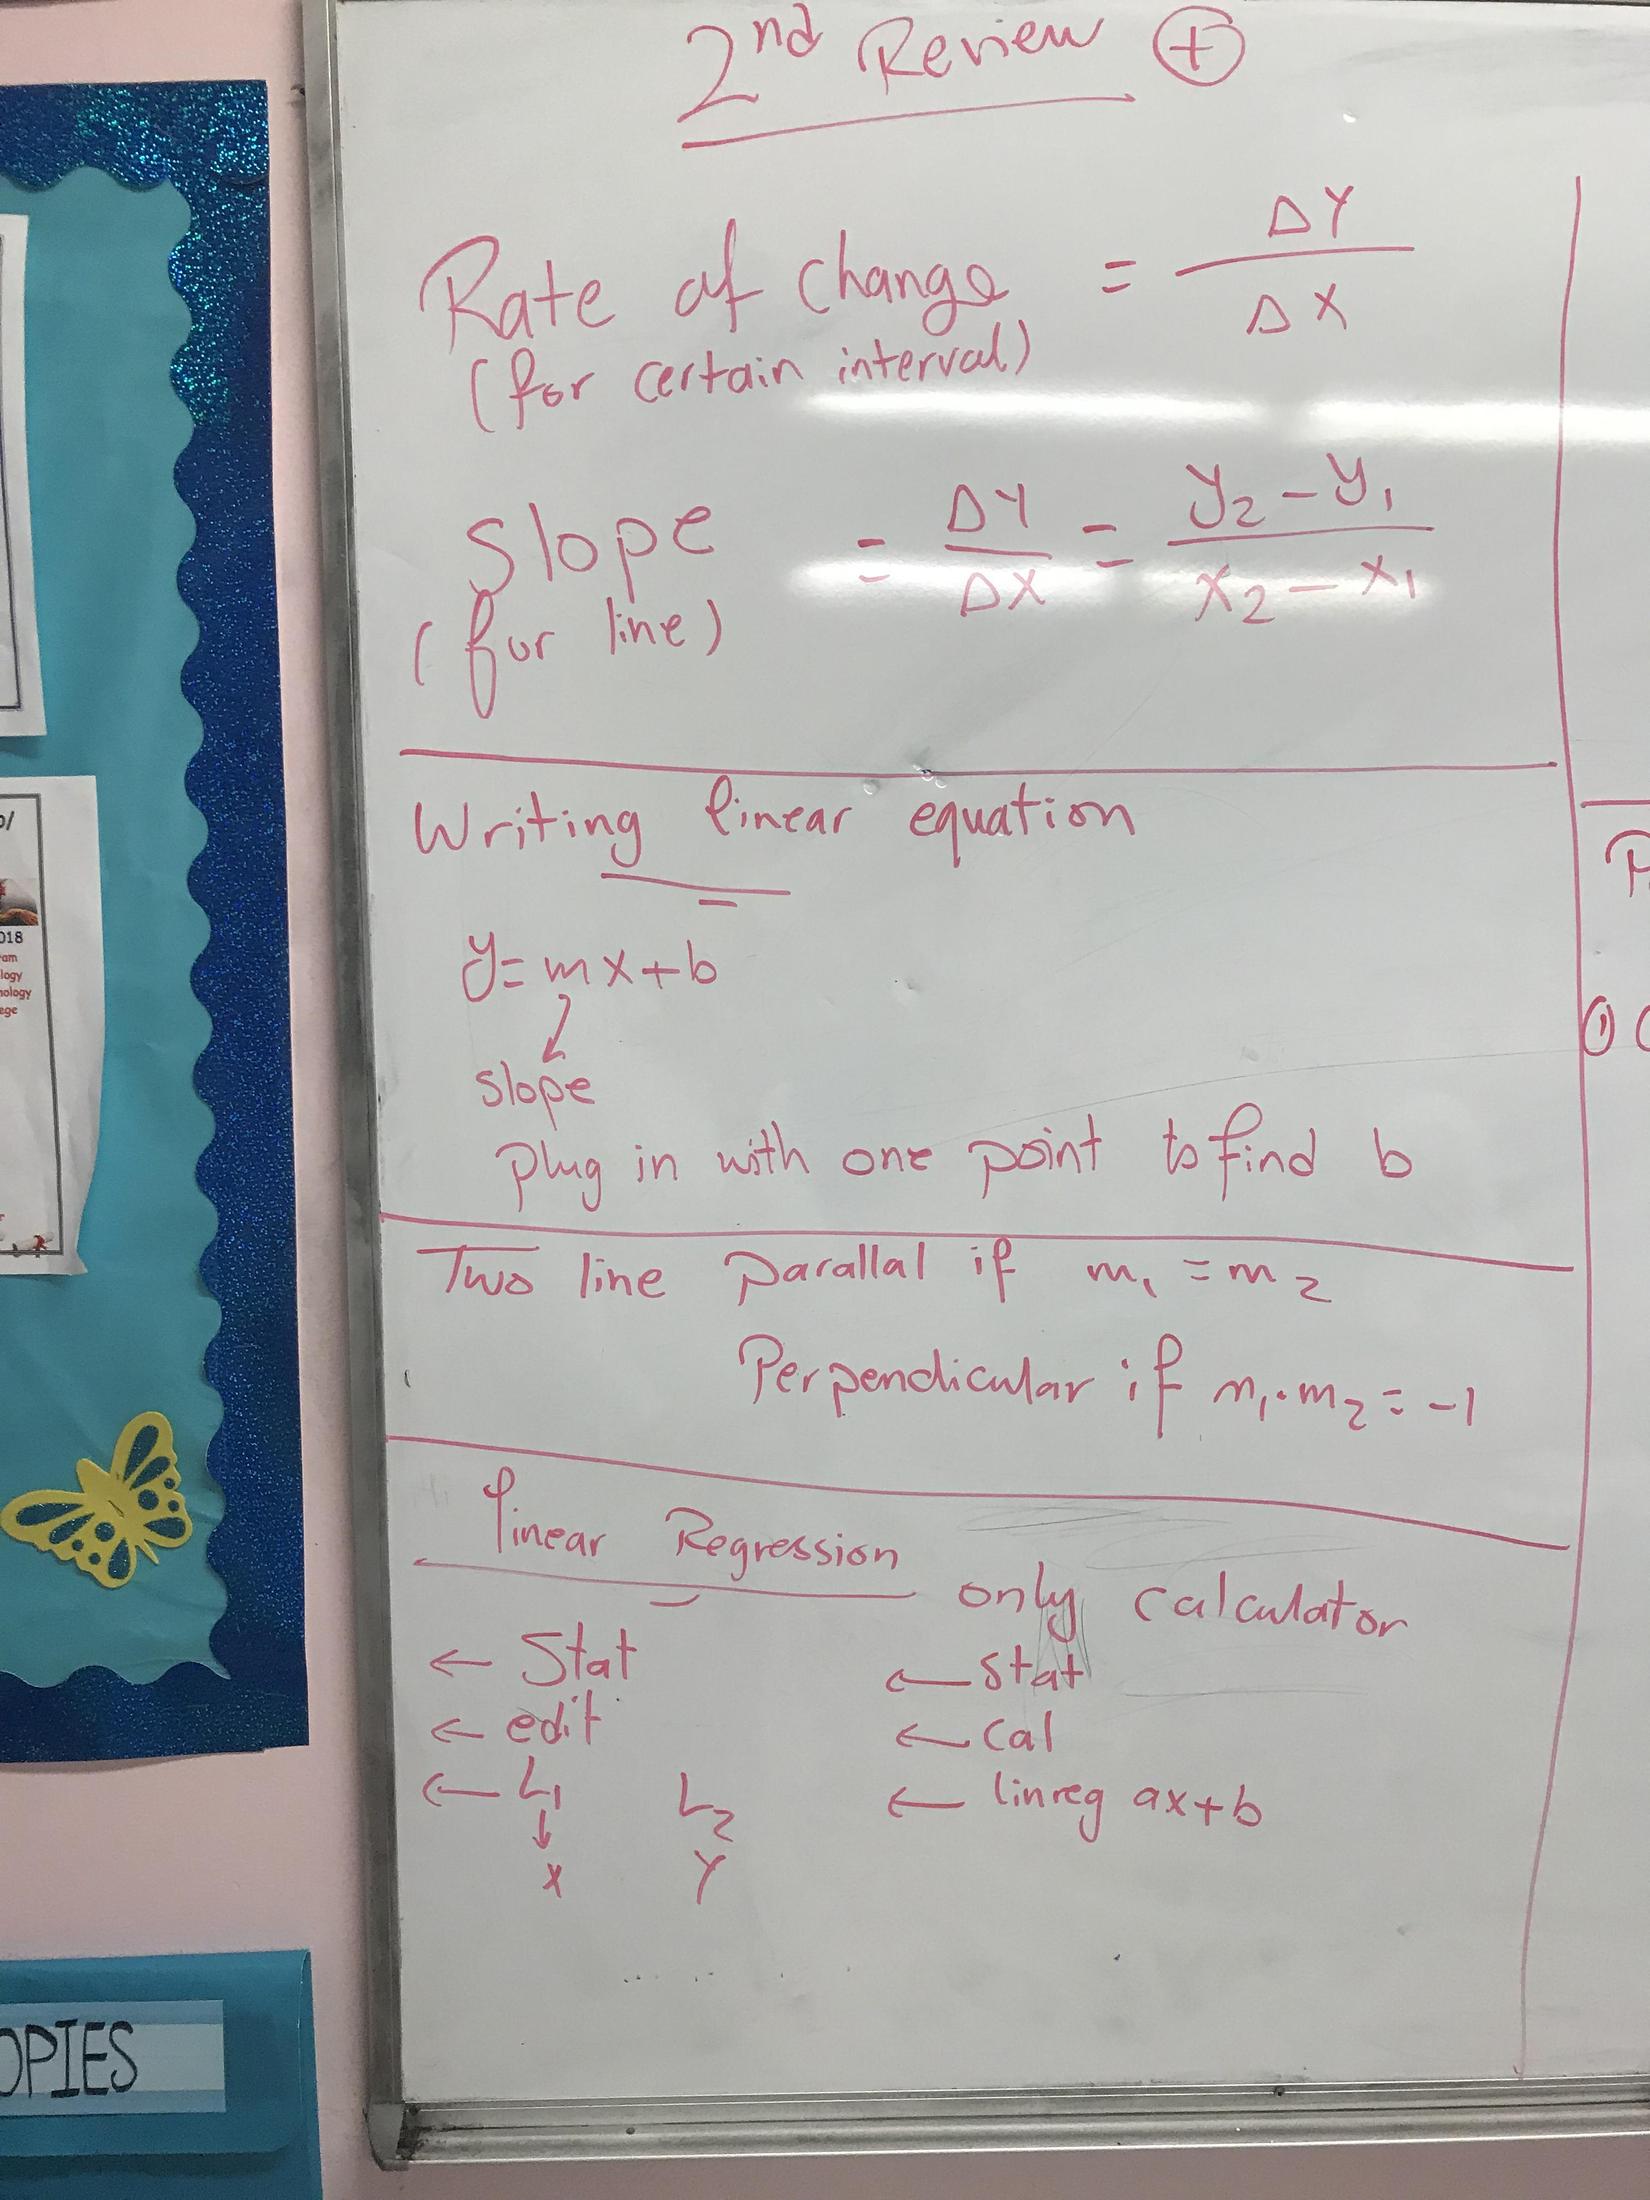 2nd Review +
Rate of change = ΔY / ΔX
(for certain interval)
Slope = ΔY / ΔX = y₂ - y₁ / x₂ - x₁
(for line)
Writing linear equation
y = mx + b
slope
plug in with one point to find b
Two line parallal if m₁ = m₂
Perpendicular if m₁ · m₂ = -1
linear Regression only calculator
← Stat
← edit
← L₁ L₂
↓
x Y
← Stat
← cal
← linreg ax+b
018
OPIES